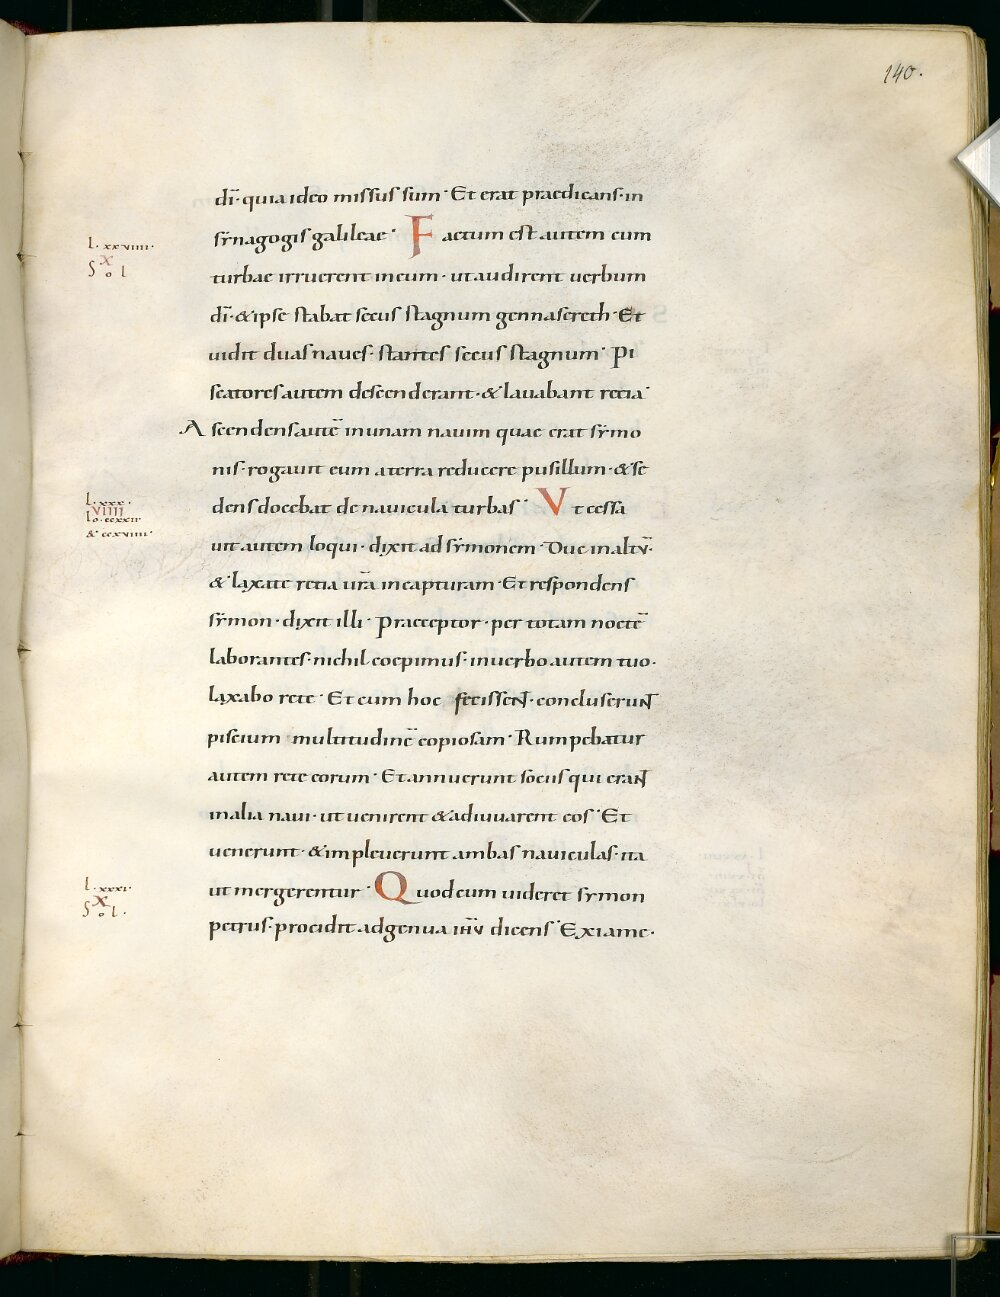 140.
dī· quia ideo missus sum· Et erat praedicans· in
sẏnagogis galileae· Factum est autem cum
l· xxviiii·
X
S o l
turbae irruerent in eum· ut audirent uerbum
dī· & ipse stabat secus stagnum gennasereth· Et
uidit duas naues· stantes secus stagnum· Pi
scatores autem descenderant· & lauabant retia·
Ascendens autē in unam nauim quae erat sẏmo
nis· rogauit eum a terra reducere pusillum· & se
dens docebat de nauicula turbas· Vt cessa
l· xxx·
VIIII
Io· ccxxii
& ccxviiii·
uit autem loqui· dixit ad sẏmonem· Duc in altū·
& laxate retia ur̄a in capturam· Et respondens
sẏmon· dixit illi· Praeceptor· per totam noctē
laborantes· nichil coepimus· in uerbo autem tuo·
laxabo rete· Et cum hoc fecissent· concluserunt
piscium multitudinē copiosam· Rumpebatur
autem rete eorum· Et annuerunt sociis qui erant
in alia naui· ut uenirent & adiuuarent eos· Et
uenerunt· & impleuerunt ambas nauiculas· ita
ut mergerentur· Quod cum uideret sẏmon
l· xxxi·
X
S o l·
petrus· procidit ad genua ihū dicens· Exi a me·